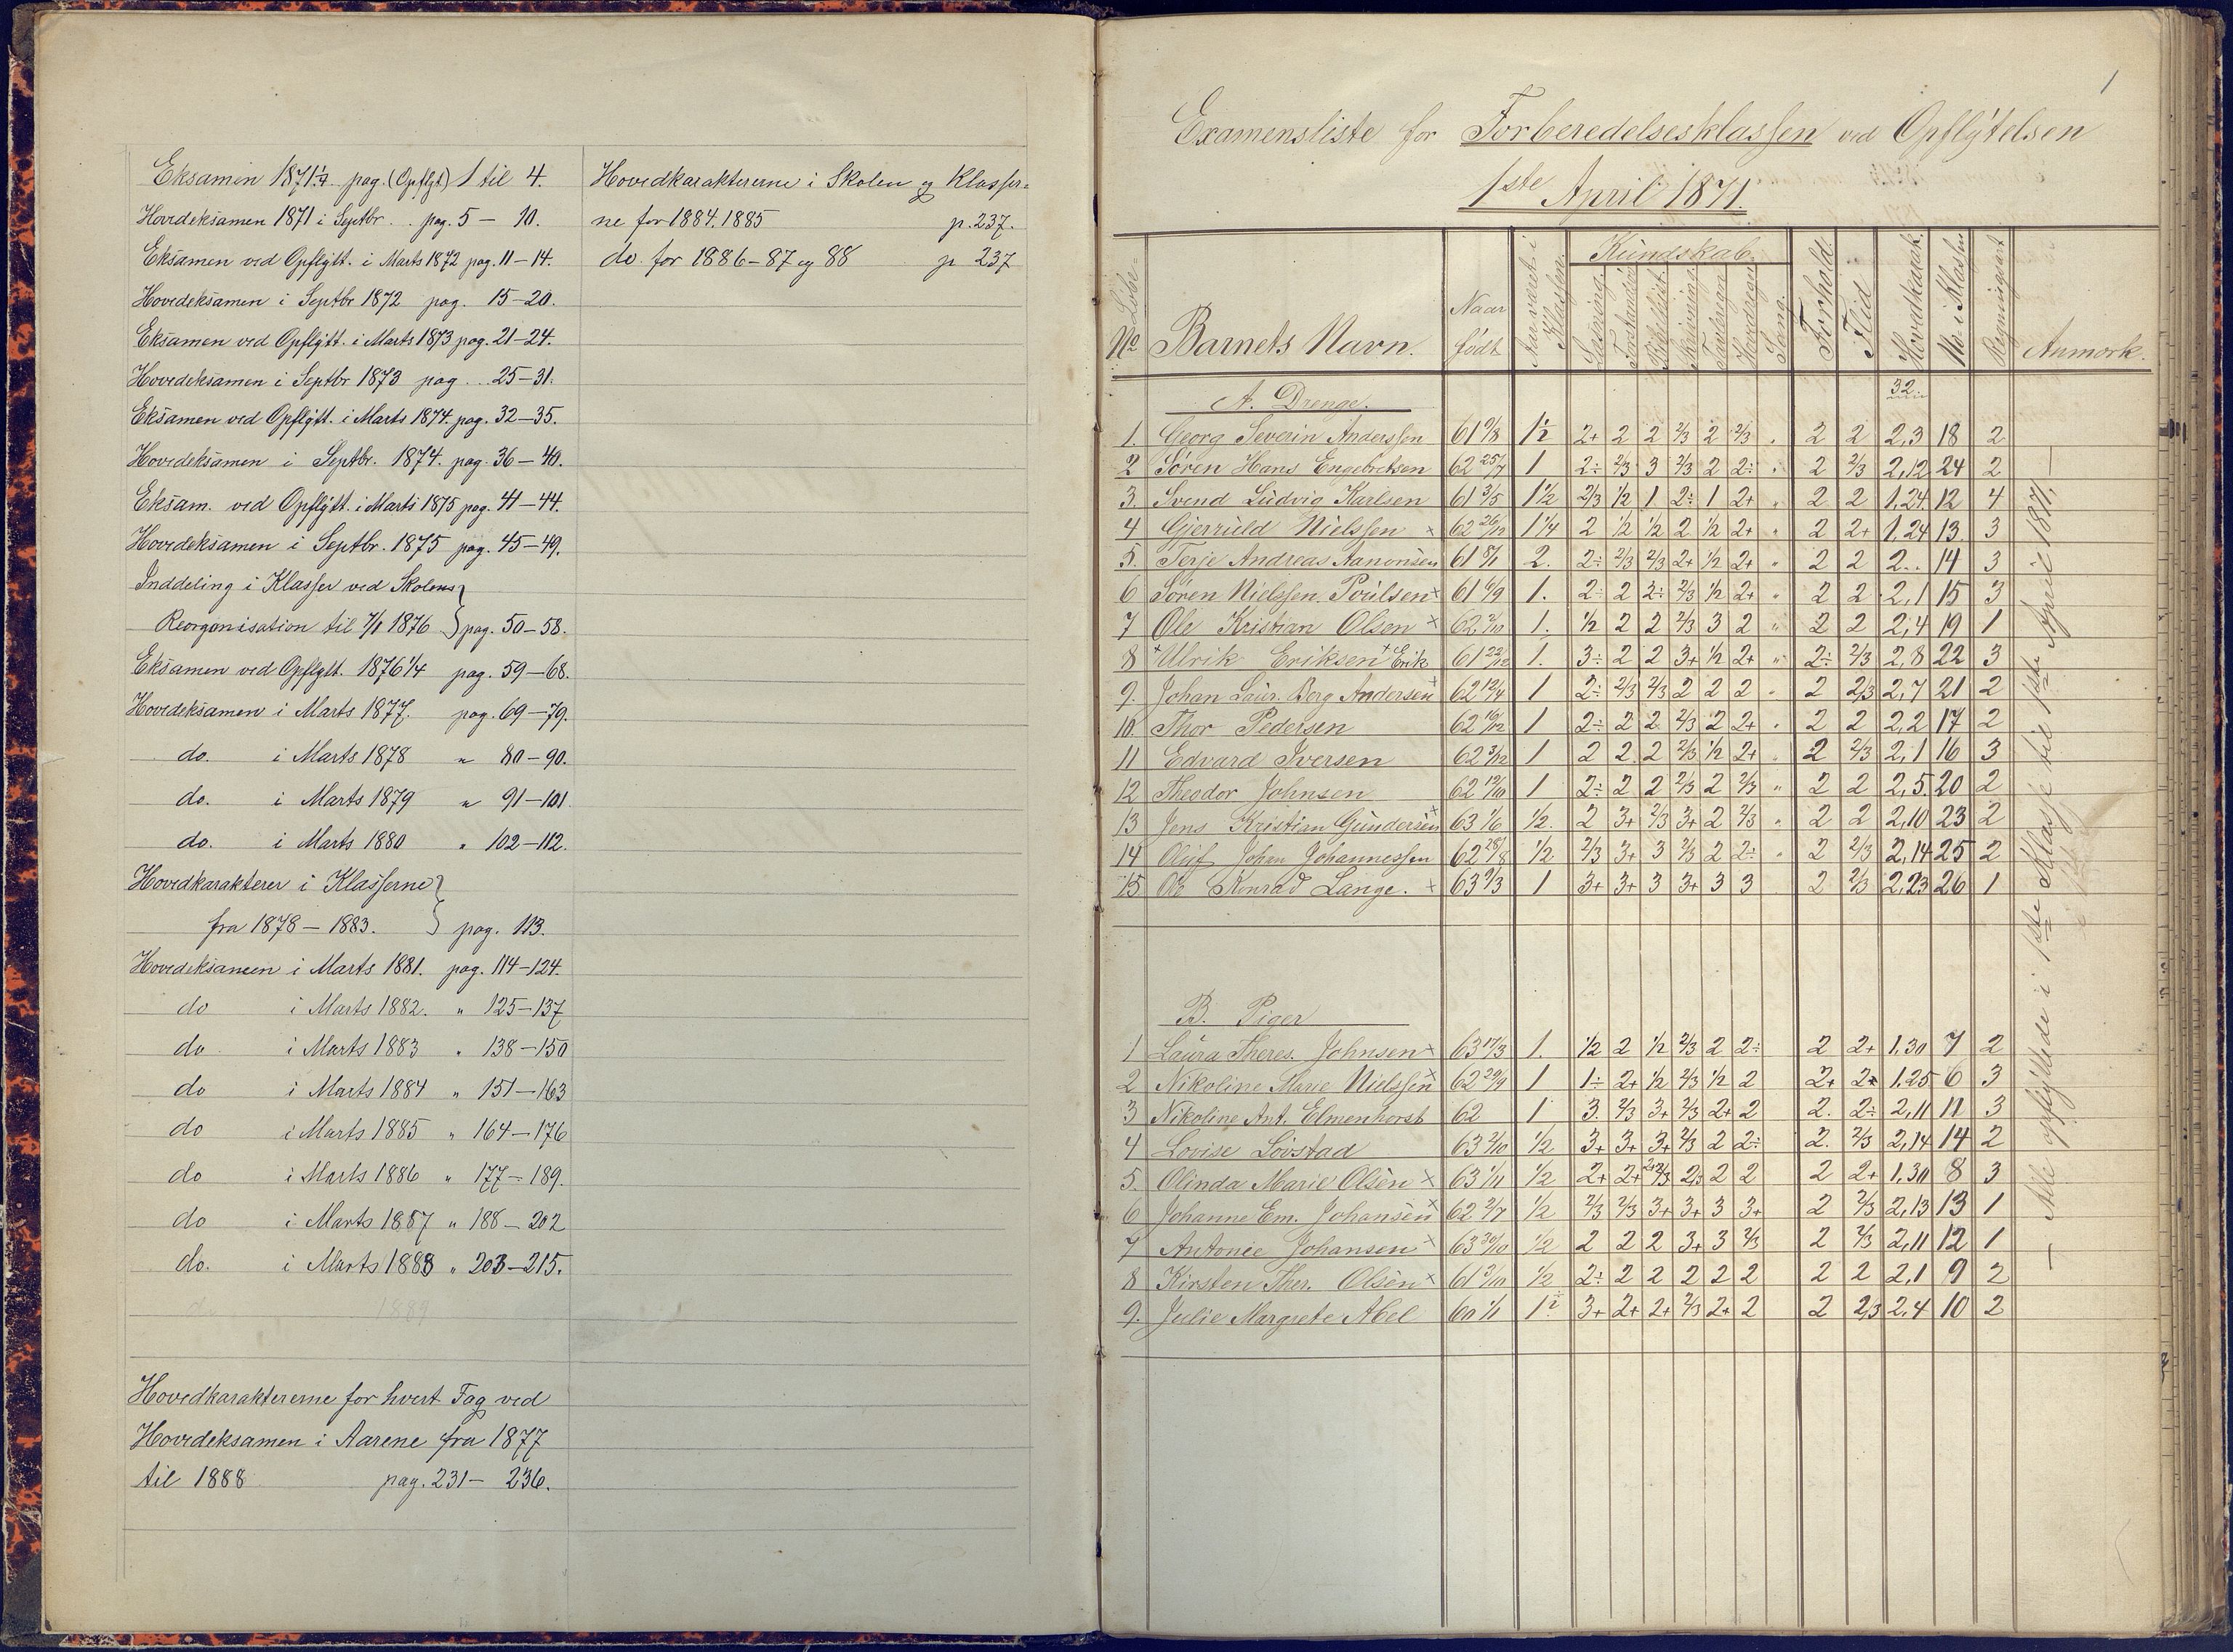 Eksamen 1871 1/4 pag. (Opflyt) 1 til 4.
Hovedeksamen 1871 i Septbr. . pag. 5 — 10.
Eksamen ved Opflytt. i Marts 1872 pag. 11 — 14.
Hovedeksamen i Septbr 1872 pag. 15 — 20.
Eksamen ved Opflytt. i Marts 1873 pag. 21 — 24.
Hovedeksamen i Septbr 1873 pag. .. 25 — 31.
Eksamen ved Opflytt. i Marts 1874. pag. 32 — 35.
Hovedeksamen i Septbr. 1874. pag. 36 — 40.
Eksam. ved Opflytt. i Marts 1875 pag. 41 — 44.
Hovedeksamen i Septbr. 1875 pag. 45 — 49.
Inddeling i Klasser ved Skolens
Reorganisation til 1/1 1876 } pag. 50 — 58.
Eksamen ved Opflytt. 1876 1/4 pag. 59 — 68.
Hovedeksamen i Marts 1877. pag. 69 — 79.
do. i Marts 1878 " 80 — 90.
do. i Marts 1879 " 91 — 101
do. i Marts 1880 " 102 — 112.
Hovedkarakterer i Klasserne
fra 1878 — 1883. } pag. 113.
Hovedeksamen i Marts 1881. pag. 114 — 124.
do i Marts 1882. " 125 — 137
do i Marts 1883 " 138 — 150
do i Marts 1884 " 151 — 163
do i Marts 1885 " 164 — 176
do i Marts 1886 " 177 — 189.
do i Marts 1887 " 188 — 202
do. i Marts 1888 " 203 — 215.
do 1889
Hovedkaraktererne for hvert Fag ved
Hovedeksamen i Aarene fra 1877
til 1888 pag. 231 — 236.
Hovedkaraktererne i Skolen og Klasser-
ne for 1884. 1885 p. 237.
do. for 1886 — 87 og 88 p 237
1
Examensliste for Forberedelsesklassen ved Opflytelsen
1ste April 1871.
Löbe-No Barnets Navn. Naar födt Aar været i Klassen. Kundskab. Forhold. Flid Hovedkarak. No i Klassen Anmærk.
Læsning Sang
A. Drenge. 32.
1. Georg Severin Anderssen 61 9/8 1 1/2 2+ 2 2 2/3 2 2/3 " 2 2 2,3 18 2
2 Sören Hans Engebretsen 62 25/7 1 2÷ 2/3 3 2/3 2 2÷ " 2 2/3 2,12 24 2
3. Svend Ludvig Karlsen 61 3/5 1 1/2 2/3 1/2 1 2÷ 1 2+ " 2 2 1.24 12 4
4 Gjerruld Nielssen × 62 26/12 1 1/4 2 1/2 1/2 2 1/2 2+ " 2 2+ 1.24 13. 3
5. Terje Andreas Aanonsen 61 8/1 2. 2÷ 2/3 2/3 2+ 1/2 2+ " 2 2 2.. 14 3
6 Sören Nielssen Poulsen × 61 6/9 1. 2÷ 2 2÷ 2/3 1/2 2+ " 2 2 2,1 15 3
7 Ole Kristian Olsen × 62 2/10 1. 1/2 2 2 2/3 3 2 " 2 2 2,4 19 1
8 × Ulrik Eriksen + Erik 61 22/12 1. 3÷ 2 2 3+ 1/2 2+ " 2÷ 2/3 2,8 22 3
9. Johan Laur. Berg Andersen 62 12/4 1 2÷ 2/3 2/3 2 2 2 " 2 2/3 2,7 21 2
10. Thor Pedersen 62 16/12 1 2÷ 2 2 2/3 2 2+ " 2 2 2,2 17 2
11 Edvard Iversen 62 3/12 1 2 2 2 2/3 1/2 2+ " 2 2/3 2,1 16 3
12 Theodor Johnsen 62 12/10 1 2÷ 2 2 2/3 2 2/3 " 2 2 2,5. 20 2
13 Jens Kristian Gundersen × 63 1/6 1/2. 2 3+ 2/3 3+ 2 2/3 " 2 2 2,10 23 2
14 Oluf Johan Johannessen 62 28/8 1/2 2/3 3+ 3 2/3 2 2÷ " 2 2/3 2,14 25 2
15 Ole Konrad Lange. × 63 9/3 1 3+ 3+ 3 3+ 3 3 2 2/3 2,23 26 1
B. Piger
1 Laura Theres. Johnsen × 63 17/3 1. 1/2 2 1/2 2/3 2 2÷ 2 2+ 1.30 7 2
2 Nikoline Marie Nielssen × 62 29/9 1 1÷ 2+ 1/2 2/3 1/2 2 2+ 2+ 1.25 6 3
3 Nikoline Ant. Elmenhorst 62 1 3. 2/3 3+ 2/3 2+ 2 2. 2÷ 2,11 11 3
4 Lovise Lövstad 63 2/10 1/2 3+ 3+ 3+ 2/3 2 2÷ 2. 2/3 2,14 14 2
5. Olinda Marie Olsen × 63 1/11 1/2 2+ 2+ 2/3 2/3 2 2 2 2+ 1.30 8 3
6 Johanne Em. Johansen × 62 2/7 1/2 2/3 2/3 3+ 3+ 3 3+ 2 2/3 2,13 13 1
7 Antonie Johansen × 63 30/10 1/2 2 2 2 3+ 3 2/3 2 2/3 2,11 12 1
8 Kirsten Ther. Olsen × 61 3/10 1/2 2÷ 2 2 2 2 2 2 2 2,1 9 2
9. Julie Margrete Abel 60 1/11 1 1/2 3+ 2+ 2+ 2/3 2+ 2 2 2/3 2.4 10 2
— Alle opflyttede i 1ste Klasse til 1ste April 1871. —